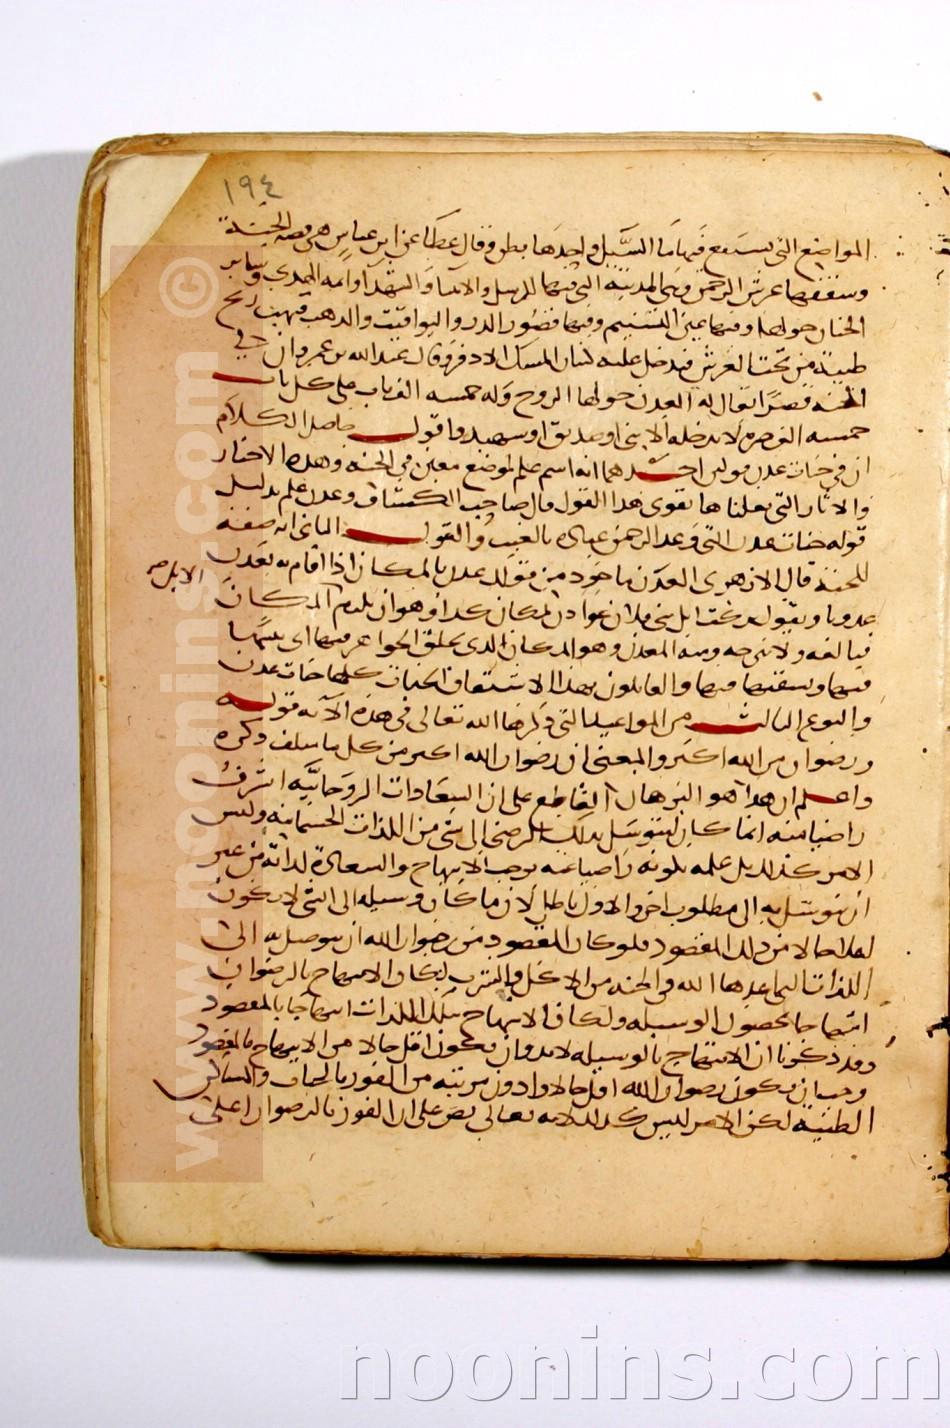 ١٩٤
المواضع التي يسمع فيها ما السبيل واحدها بطو وقال عطا عن ابن عباس هي قصبة الجنة
وسقفها عرش الرحمن وهي المدينة التي فيها الرسل والانبيا والشهدا وايمة الهدي وساير
الجنان حولها وفيها عين التسنيم وفيها قصور الدر واليواقيت والدهب فتهب ريح
طيبة من تحت العرش فيدخل عليه كثبان المسك الادفر وقال عبد الله بن عمرو ان في
الجنه قصرا يقال له العدن حولها الروح وله خمسه الف باب على كل باب
خمسه الف حره لا يدخله الا نبي او صديق او شهيد واقول حاصل الكلام
ان في جنات عدن قولين احدهما انه اسم علم لموضع معين في الجنه وهده الاخبار
والاثار التي نقلناها تقوى هدا القول قال صاحب الكشاف وعدن علم بدليل
قوله جنات عدن التي وعد الرحمن عباده بالغيب والقول الثاني انه صفه
للجنة قال الازهري العدن ماخود من قولك عدن بالمكان ادا اقام به يعدن
الابل
عدونا ويقول تركت ابل بني فلان عوادن بمكان كدا وهو ان يلزم المكان
فيالفه ولا يبرحه ومنه المعدن وهو المكان الدي يخلق الجواهر فيها
والقايلون بهدا الاشتقاق الجنات كلها جنات عدن
والنوع الثالث من المواعيد التي دكرها الله تعالى في هده الآية قوله
ورضوان من الله اكبر والمعنى ان رضوان الله اكبر من كل ما سلف دكره
واعلم ان هدا هو البرهان القاطع على ان السعادات الروحانية اشرف
راضيا منه انما كان ليتوسل بدلك الرضى الى شي من اللدات الجسمانيه وليس
الامر كدلك بل علمه بكونه راضيا عنه يوجب الابتهاج والسعادة لداته من غير
ان يتوسل به الى مطلوب اخر والاول باطل لان ما كان وسيله الى الشي لا يكون
اعلا حالا من دلك المقصود فلو كان المقصود من رضوان الله ان يتوصل به الى
اللدات التي اعدها الله في الجنه من الاكل والشرب لكان الابتهاج بالرضوان
ابتهاجا بحصول الوسيله ولكان الابتهاج بتلك اللدات ابتهاجا بالمقصود
وقد دكرنا ان الابتهاج بالوسيله لا بد وان يكون اقل حالا من الابتهاج بالمقصود
وجب ان يكون رضوان الله اقل حالا وادون مرتبه من الفوز بالجنات والمساكن
الطيبة لكن الامر ليس كدلك لانه تعالى نص على ان الفوز بالرضوان اعلى
www.noonins.com ©
noonins.com